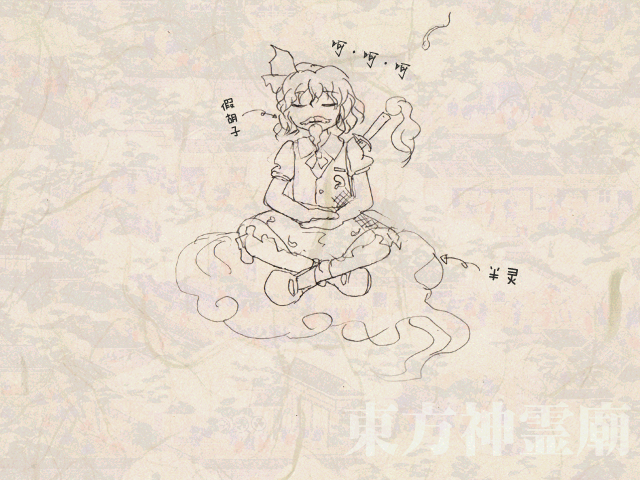 呵·呵·呵
假胡子
半灵
東方神霊廟